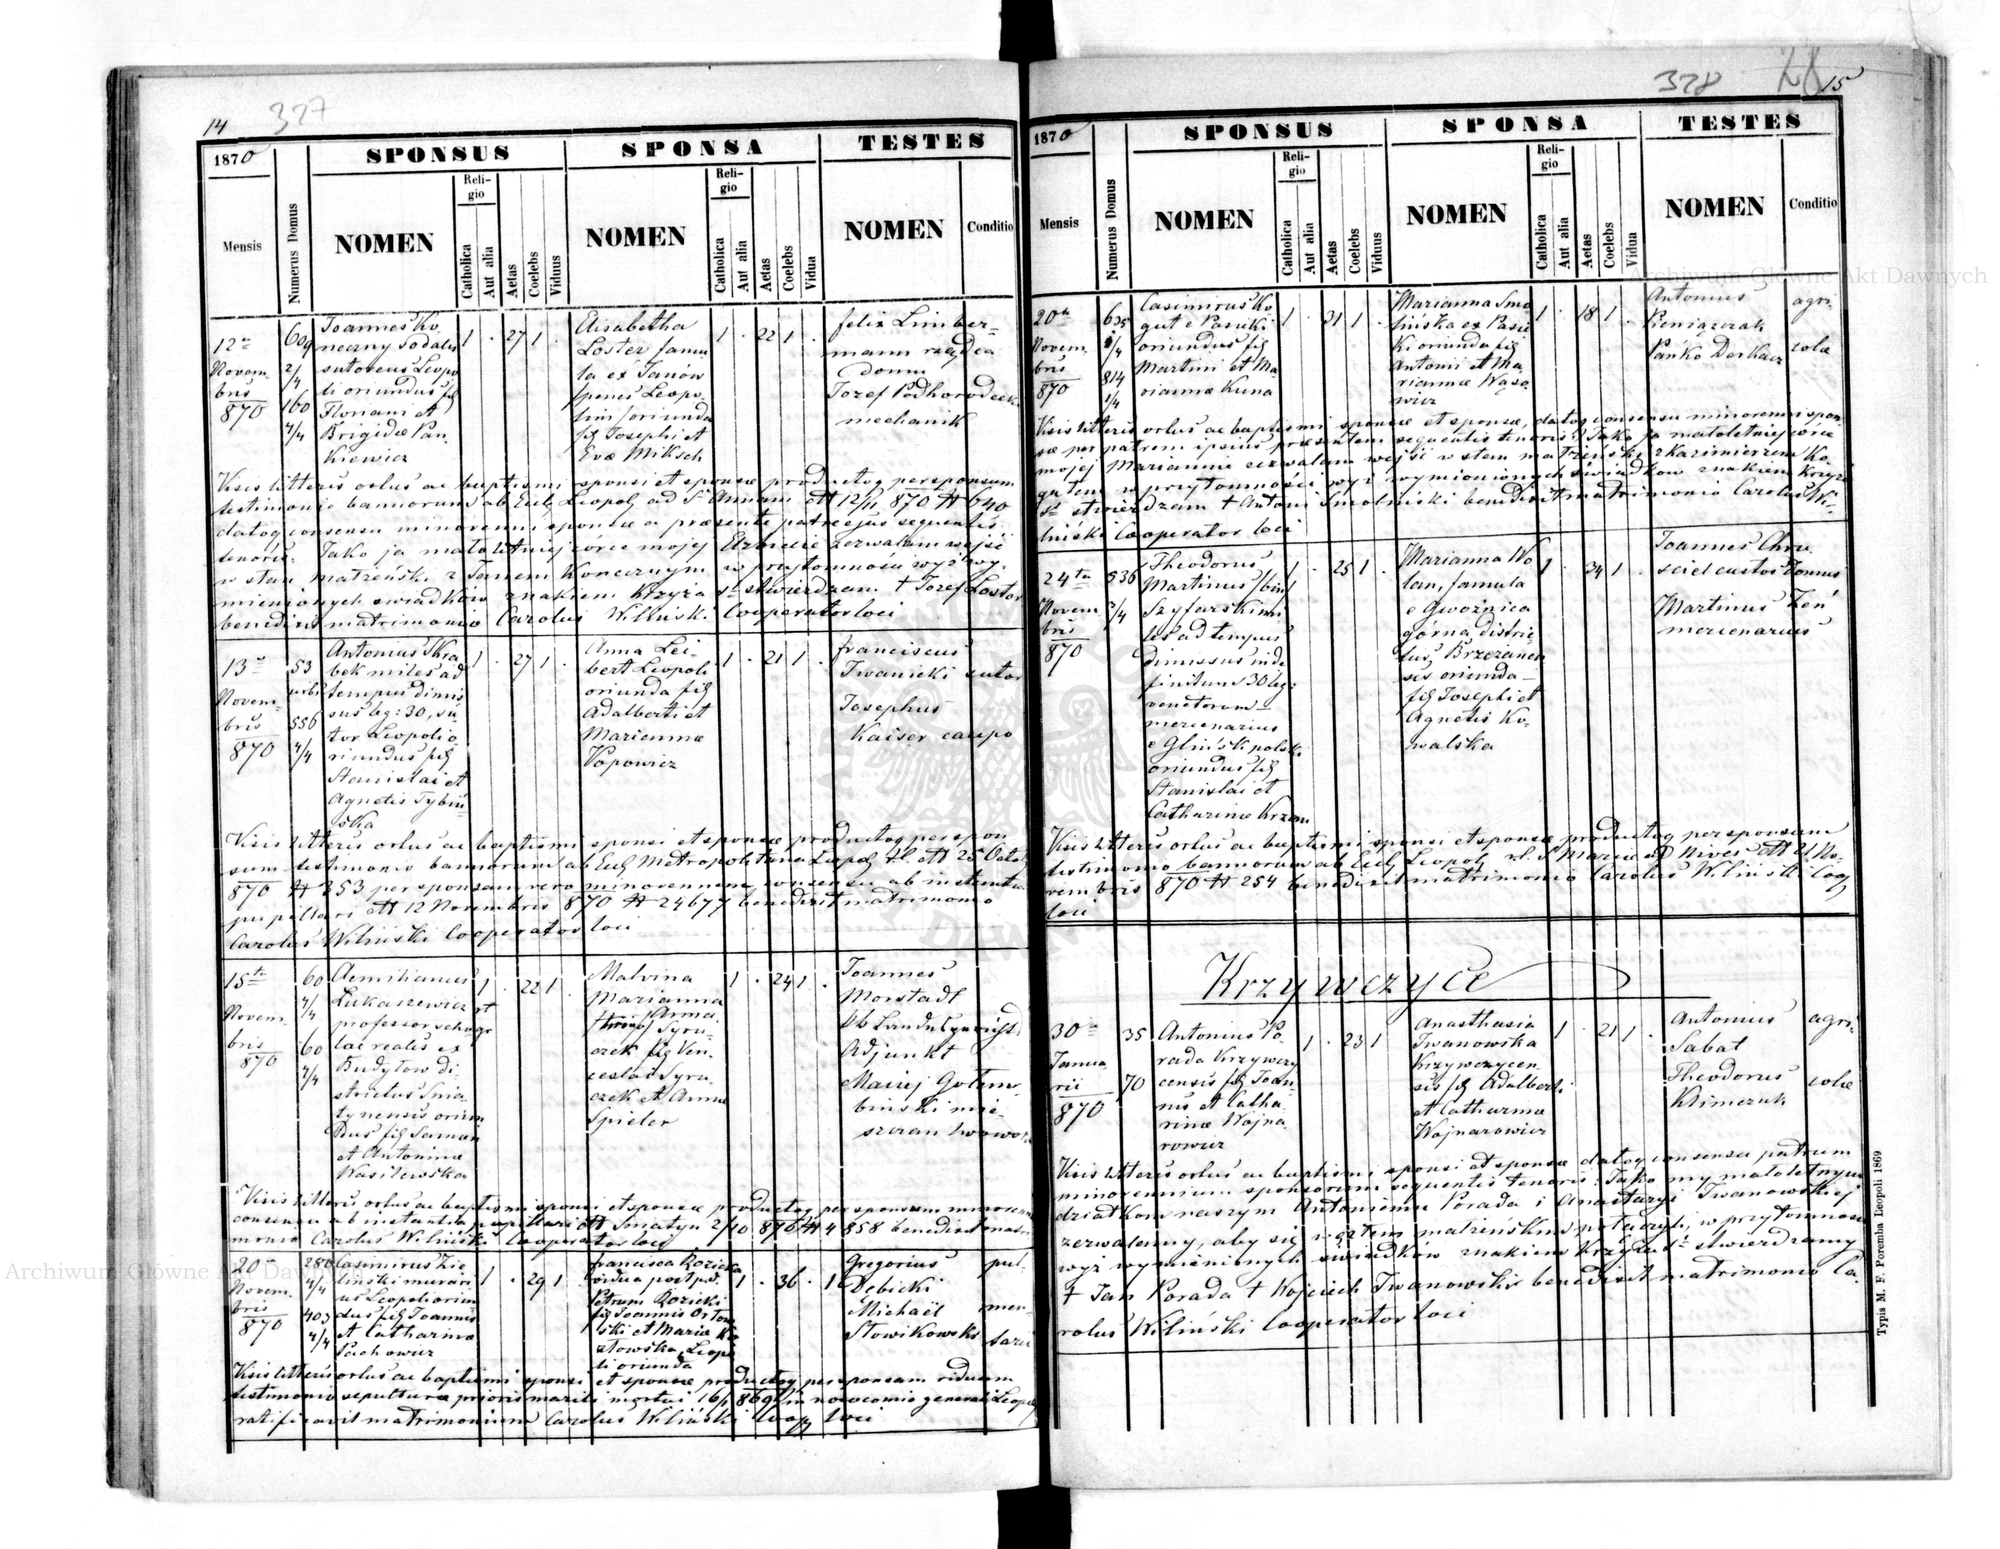 14
327
1870
SPONSUS
SPONSA
TESTES
Mensis
Numerus Domus
NOMEN
Religio
Catholica
Aut alia
Aetas
Coelebs
Viduus
NOMEN
Religio
Catholica
Aut alia
Aetas
Coelebs
Vidua
NOMEN
Conditio
12
Novem
bris
870
609
2/4
160
4/4
Joannes Ko
neczny sodalis
sutoreus Leopo
li oriundus fil
Floriani et
Brigidae Pan
kiewicz
1 . 27 1
Elisabetha
Loster famu
la ex Janów
penes Leopo
lim oriunda
fil Josephi et
Evae Miksch
1 . 22 1 .
felix Limber-
mann rządca
domu
Jozef Podhorodecki
mechanik
Visis litteris ortus ac baptismi sponsi et sponsae productoq per sponsum
testimonio bannorum ab Eccl Leopol ad S. Annam 12/11 870 N 640
datoq consensu minorenni sponsae a praesente patre ejus sequentis
tenoris: Jako ja małoletniej córce mojej Elzbiecie zezwalam wejść
w stan małżeński z Janem Konecznym w przytomności wyż wy-
mienionych świadków znakiem krzyża stwierdzam + Jozef Loster
benedixit matrimonio Carolus Wiliński Cooperator loci
13
Novem-
bris
870
53
urbs
556
4/4
Antonius Skra
bek miles ad
tempus dimis
sus leg: 30, su
tor Leopoli o
riundus fil
Stanislai et
Agnetis Tybiń
ska
1 . 27 1 .
Anna Lei-
bert Leopoli
oriunda fil
Adalberti et
Mariannae
Popowicz
1 . 21 1 .
franciscus
Iwanicki sutor
Josephus
Kaiser caupo
Visis litteris ortus ac baptismi sponsi et sponsae productoq per spon
sum testimonio bannorum ab Eccl Metropolitana Leopol r.l. 25 Octob
870 N 253 per sponsam vero minorennem consensu ab instantia
pupillari 12 Novembris 870 N 24677 benedixit matrimonio
Carolus Wiliński Cooperator loci
15
Novem
bris
870
60
4/4
60
4/4
Aemilianus
Lukaszewicz
professor scho
lae realis ex
Budyłow di
strictus Snia
tynensis oriun
dus fil Saman
et Antoninae
Wasilewska
1 . 22 1 .
Malvina
Marianna
Anna
Syru
czek fil Ven
ceslai Syru
czek et Annae
Spieler
1 . 24 1 .
Joannes
Morstadt
Adjunkt
Maciej Gołem
binski mie
szczan lwows
Visis litteris ortus ac baptismi sponsi et sponsae productoq per sponsum minorem
consensu ab instantia pupillari Sniatyn 2/10 870 N 4858 benedixit matri
monio Carolus Wiliński Cooperator loci
20
Novem
bris
870
280
4/4
403
4/4
Casimirus Zie
linski murari
us Leopoli oriun
dus fil Joannis
et Catharinae
Pachowicz
1 . 29 1
francisca Rozicka
vidua post p.d.
Petrum Rozicki
fil Joannis Ortow
ski et Mariae Ko
złowska, Leopo
li oriunda
1 . 36 . 1
Gregorius
Dębicki
Michaël
Słowikowski
Visis litteris ortus ac baptismi sponsi et sponsae productoq per sponsam viduam
testimonio sepulturae prioris mariti mortui 16/1 869 in nosocomio generali Leopol
ratificavit matrimonium Carolus Wiliński Coop loci
328
28
15
1870
SPONSUS
SPONSA
TESTES
Mensis
Numerus Domus
NOMEN
Religio
Catholica
Aut alia
Aetas
Coelebs
Viduus
NOMEN
Religio
Catholica
Aut alia
Aetas
Coelebs
Vidua
NOMEN
Conditio
20
Novem
bris
870
635
1/4
814
1/4
Casimirus Ko
gut e Pasieki
oriundus fil
Martini et Ma
riannae Kuna
1 . 31 1 .
Marianna Smo
lińska ex Pasie
ki oriunda fil
Antonii et Ma
riannae Wąso
wicz
1 . 18 1 .
Antonius
Pieniaczak
Pańko Derkacz
agri
colae
Visis litteris ortus ac baptismi sponsi et sponsae, datoq consensu minorenni spon
sae per patrem ipsius praesentem sequentis tenoris: Jako ja małoletniej córce
mojej Mariannie zezwalam wejść w stan małżeński z Kazimierzem Ko
gutem w przytomności wyż wymienionych świadków znakiem krzyża
stwierdzam + Antoni Smoliński benedixit matrimonio Carolus Wi-
liński Cooperator loci
24
Novem
bris
870
536
3/4
Theodorus
Martinus
Szyfarski mi
les ad tempus
dimissus inde
finitum 30 leg:
mercenarius
e Glińsk polski
oriundus fil
Stanislai et
Catharinae
1 . 25 1 .
Marianna Wo
lan, famula
e Gwoźnica
górna distric
tus Brzezanen
sis oriunda
fil Josephi et
Agnetis Ko-
walska
1 . 34 1 .
Joannes Chru
ściel custos domus
Martinus Zeń
mercenarius
Visis litteris ortus ac baptismi sponsi et sponsae productoq per sponsum
testimonio bannorum ab Eccl Leopol r.l. S. Mariae ad Nives 21 No-
vembris 870 N 254 benedixit matrimonio Carolus Wiliński Coop
loci
Krzywczyce
30
Janua
rii
870
35
70
Antonius Po
rada Krzywczy
censis fil Joan
nis et Catha
rinae Wojna
rowicz
1 . 23 1
Anasthasia
Iwanowska
Krzywczycen
sis fil Adalberti
et Catharinae
Wojnarowicz
1 . 21 1 .
Antonius
Sabat
Theodorus
Klimczuk
agri-
colae
Visis litteris ortus ac baptismi sponsi et sponsae datoq consensu patrum
minorennium sponsorum sequentis tenoris: Jako my małoletnym
dziatkom naszym Antoniemu Porada i Anastazyi Iwanowskiej
zezwalamy, aby się węzłem małżeńskim połączyli, w przytomności
wyż wymienionych świadków znakiem krzyża stwierdzamy
+ Jan Porada + Wojciech Iwanowski benedixit matrimonio Ca-
rolus Wiliński Cooperator loci
Typis M. F. Poremba Leopoli 1869
Archiwum Główne Akt Dawnych
Archiwum Główne Akt Dawnych